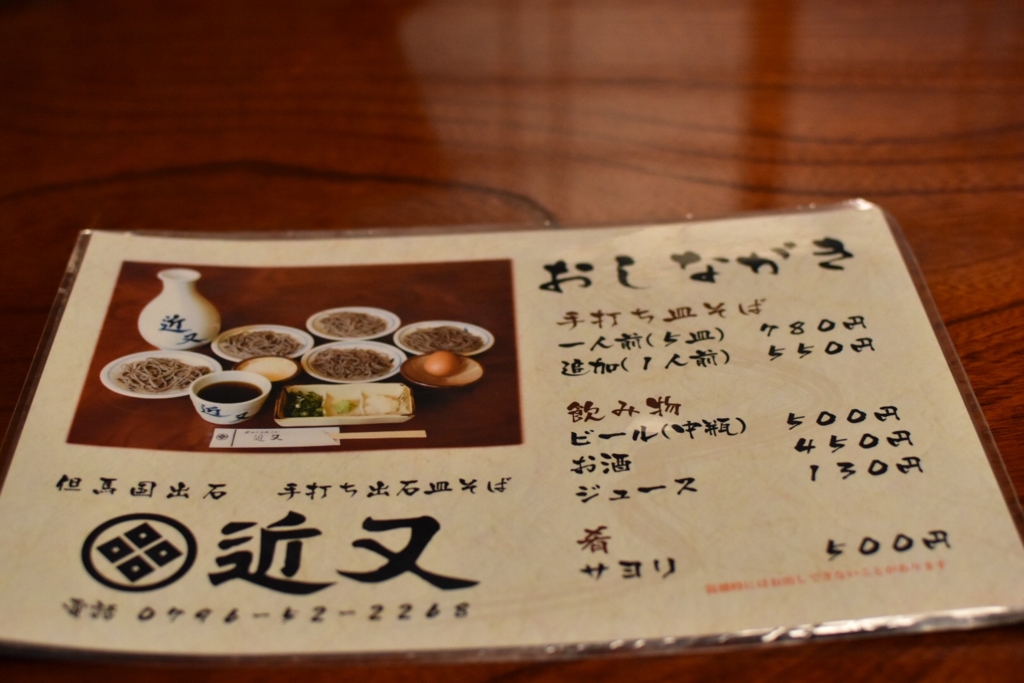 おしながき
手打ち皿そば
一人前(5皿) 780円
追加(1人前) 550円
飲み物
ビール(中瓶) 500円
お酒 450円
ジュース 130円
肴
サヨリ 500円
近又
近又
近又
但馬国出石 手打ち出石皿そば
近又